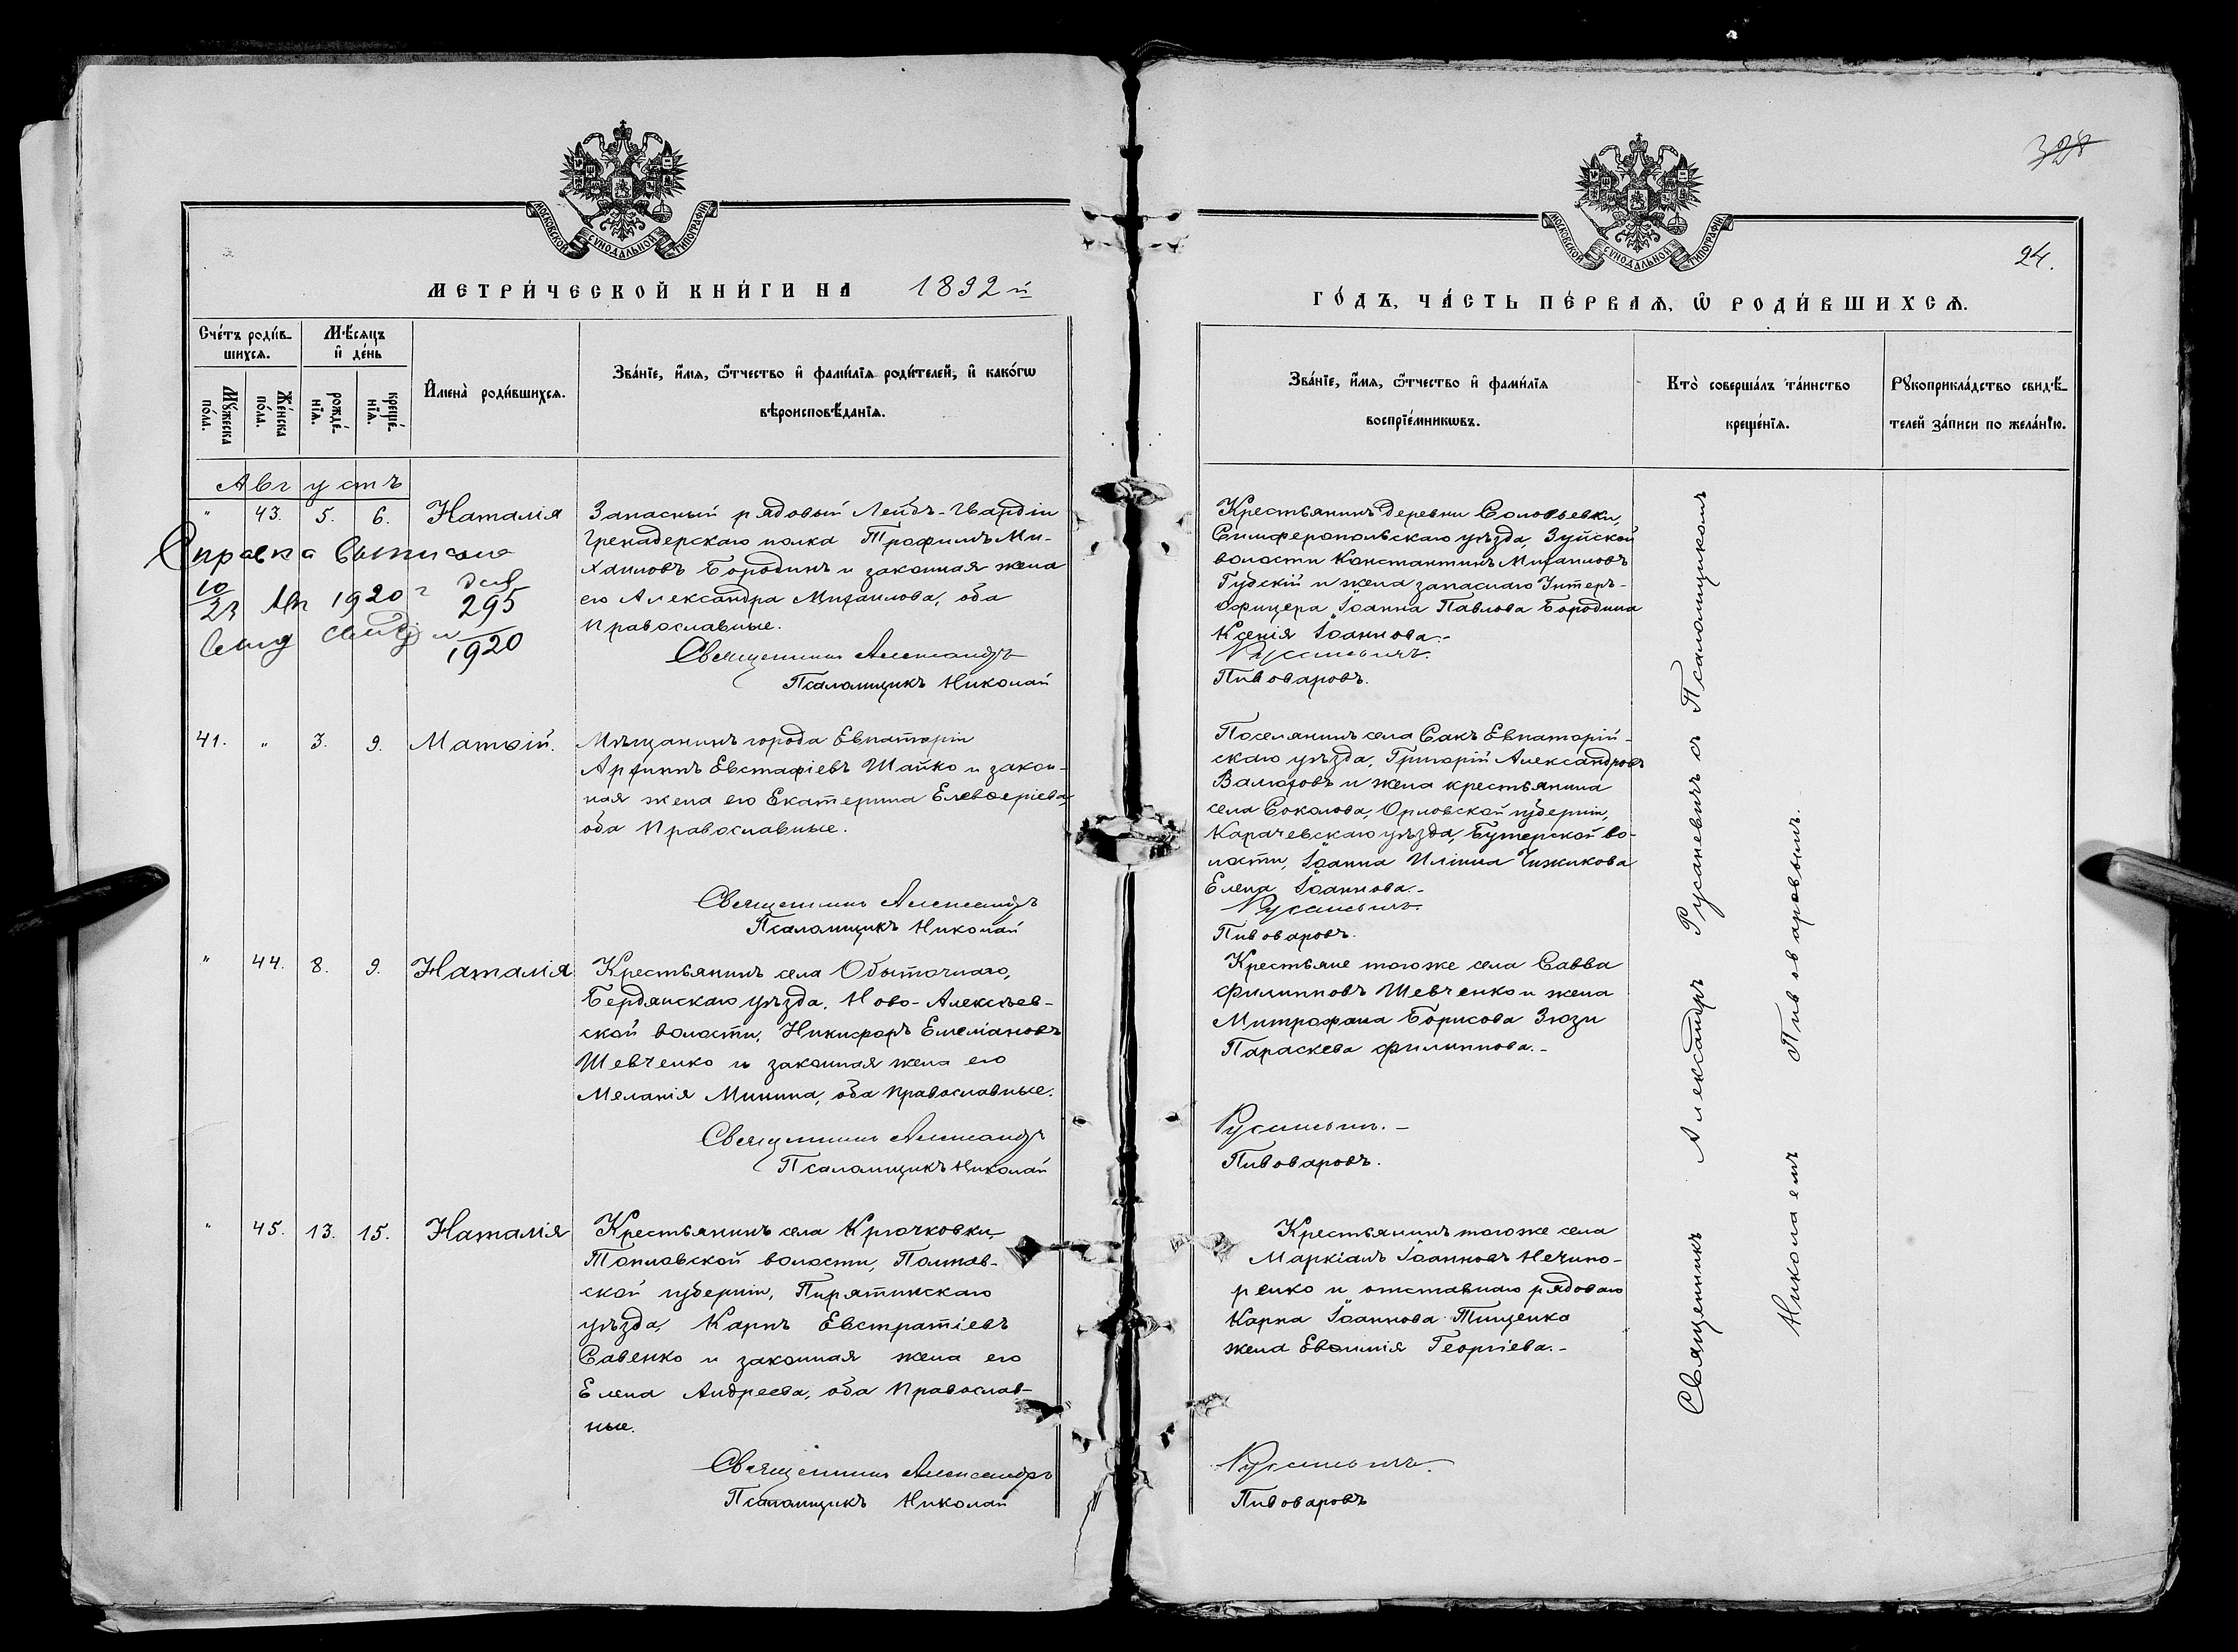 МОСКОВСКОЙ СѴНОДАЛЬНОЙ ТИПОГРАФІИ
МЕТРИ́ЧЕСКОЙ КНИ́ГИ НА 1892й
Сче́тъ роди́в-
шихсѧ.
Мѣ́сѧцъ
и҆ де́нь
И҆мена̀ роди́вшихсѧ.
Зва́нїе, и҆́мѧ, ѻ҆́тчество и҆ фами́лїѧ роди́телей, и҆ како́гѡ
вѣроисповѣ́данїѧ.
Мꙋ́жеска
по́ла.
Же́нска
по́ла.
рожде́-
нїѧ.
креще́-
нїѧ.
Августъ
" 43. 5. 6. Наталія
Запасный рядовый Лейбъ-Гвардіи
Гренадерскаго полка Трофимъ Ми-
хаиловъ Бородинъ и законная жена
его Александра Михаилова, оба
Православные.
Священникъ Александръ
Псаломщикъ Николай
Справка
10/23 1920 г
295
1920
41. " 3. 9. Матѳій.
Мѣщанинъ города Евпаторіи
Архипъ Евстафіевъ Шайко и закон-
ная жена его Екатерина Елевѳеріева,
оба Православные.
Священникъ Александръ
Псаломщикъ Николай
" 44. 8. 9. Наталія
Крестьянинъ села Обыточнаго,
Бердянскаго уѣзда, Ново-Алексѣев-
ской волости, Никифоръ Емеліановъ
Шевченко и законная жена его
Меланія Минина, оба Православные.
Священникъ Александръ
Псаломщикъ Николай
" 45. 13. 15. Наталія
Крестьянинъ села Крючковки,
Топловской волости, Полтав-
ской губерніи, Пирятинскаго
уѣзда, Карпъ Евстратіевъ
Савенко и законная жена его
Елена Андреева, оба Православ-
ные.
Священникъ Александръ
Псаломщикъ Николай
328
24.
МОСКОВСКОЙ СѴНОДАЛЬНОЙ ТИПОГРАФІИ
ГО́ДЪ, ЧА́СТЬ ПЕ́РВАѦ, Ѽ РОДИ́ВШИХСѦ.
Зва́нїе, и҆́мѧ, ѻ҆́тчество и҆ фами́лїѧ
воспрїе́мникѡвъ.
Кто̀ соверша́лъ та́инство
креще́нїѧ.
Рꙋкоприкла́дство свидѣ́-
телей за́писи по жела́нїю.
Крестьянинъ деревни Соловьевки,
Симферопольскаго уѣзда, Зуйской
волости Константинъ Михаиловъ
Губскій и жена запаснаго Унтеръ-
офицера Іоанна Павлова Бородина
Ксенія Іоаннова.-
Русаневичъ.
Пивоваровъ.
Поселянинъ села Сакъ Евпаторій-
скаго уѣзда, Григорій Александровъ
Валюховъ и жена крестьянина
села Соколова, Орловской губерніи,
Карачевскаго уѣзда, Бутерской во-
лости, Іоанна Иліина Чижикова
Елена Іоаннова.-
Русаневичъ.
Пивоваровъ.
Крестьяне того же села Савва
Филипповъ Шевченко и жена
Митрофана Борисова Зюзи
Параскева Филиппова.-
Русаневичъ.-
Пивоваровъ.
Крестьянинъ того же села
Маркіанъ Іоанновъ Нечипо-
ренко и отставнаго рядоваго
Карпа Іоаннова Тищенка
жена Евѳимія Георгіева.-
Русаневичъ.
Пивоваровъ
Священникъ Александръ Русаневичъ съ Псаломщикомъ
Николаемъ Пивоваровымъ.